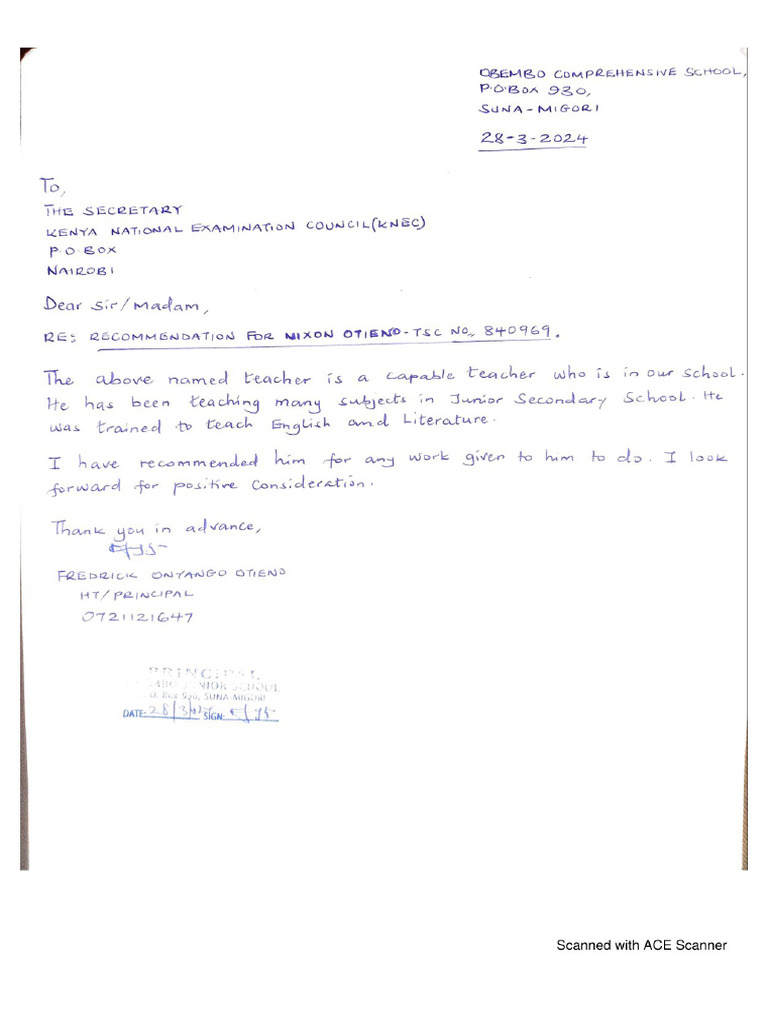 OBEMBO COMPREHENSIVE SCHOOL,
P.O.BOX 930,
SUNA-MIGORI
28-3-2024
To,
THE SECRETARY
KENYA NATIONAL EXAMINATION COUNCIL(KNEC)
P.O.BOX
NAIROBI
Dear Sir/Madam,
RE: RECOMMENDATION FOR NIXON OTIENO-TSC NO,, 840969.
The above named teacher is a capable teacher who is in our school.
He has been teaching many subjects in Junior Secondary School. He
was trained to teach English and Literature.
I have recommended him for any work given to him to do. I look
forward for positive consideration.
Thank you in advance,
FREDRICK ONYANGO OTIENO
HT/PRINCIPAL
0721121647
PRINCIPAL
JUNIOR SCHOOL
Box 930, SUNA-MIGORI
DATE: 28/3/ SIGN:
Scanned with ACE Scanner